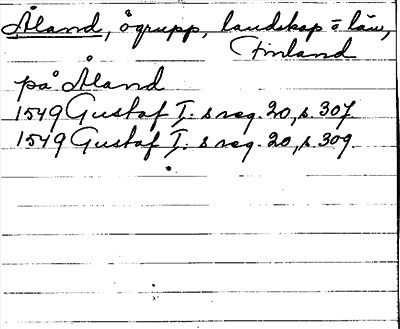 Åland, ögrupp, landskap o län,
Finland
på Åland
1549 Gustaf I:s reg. 20, s. 307.
1549 Gustaf I:s reg. 20, s. 309.